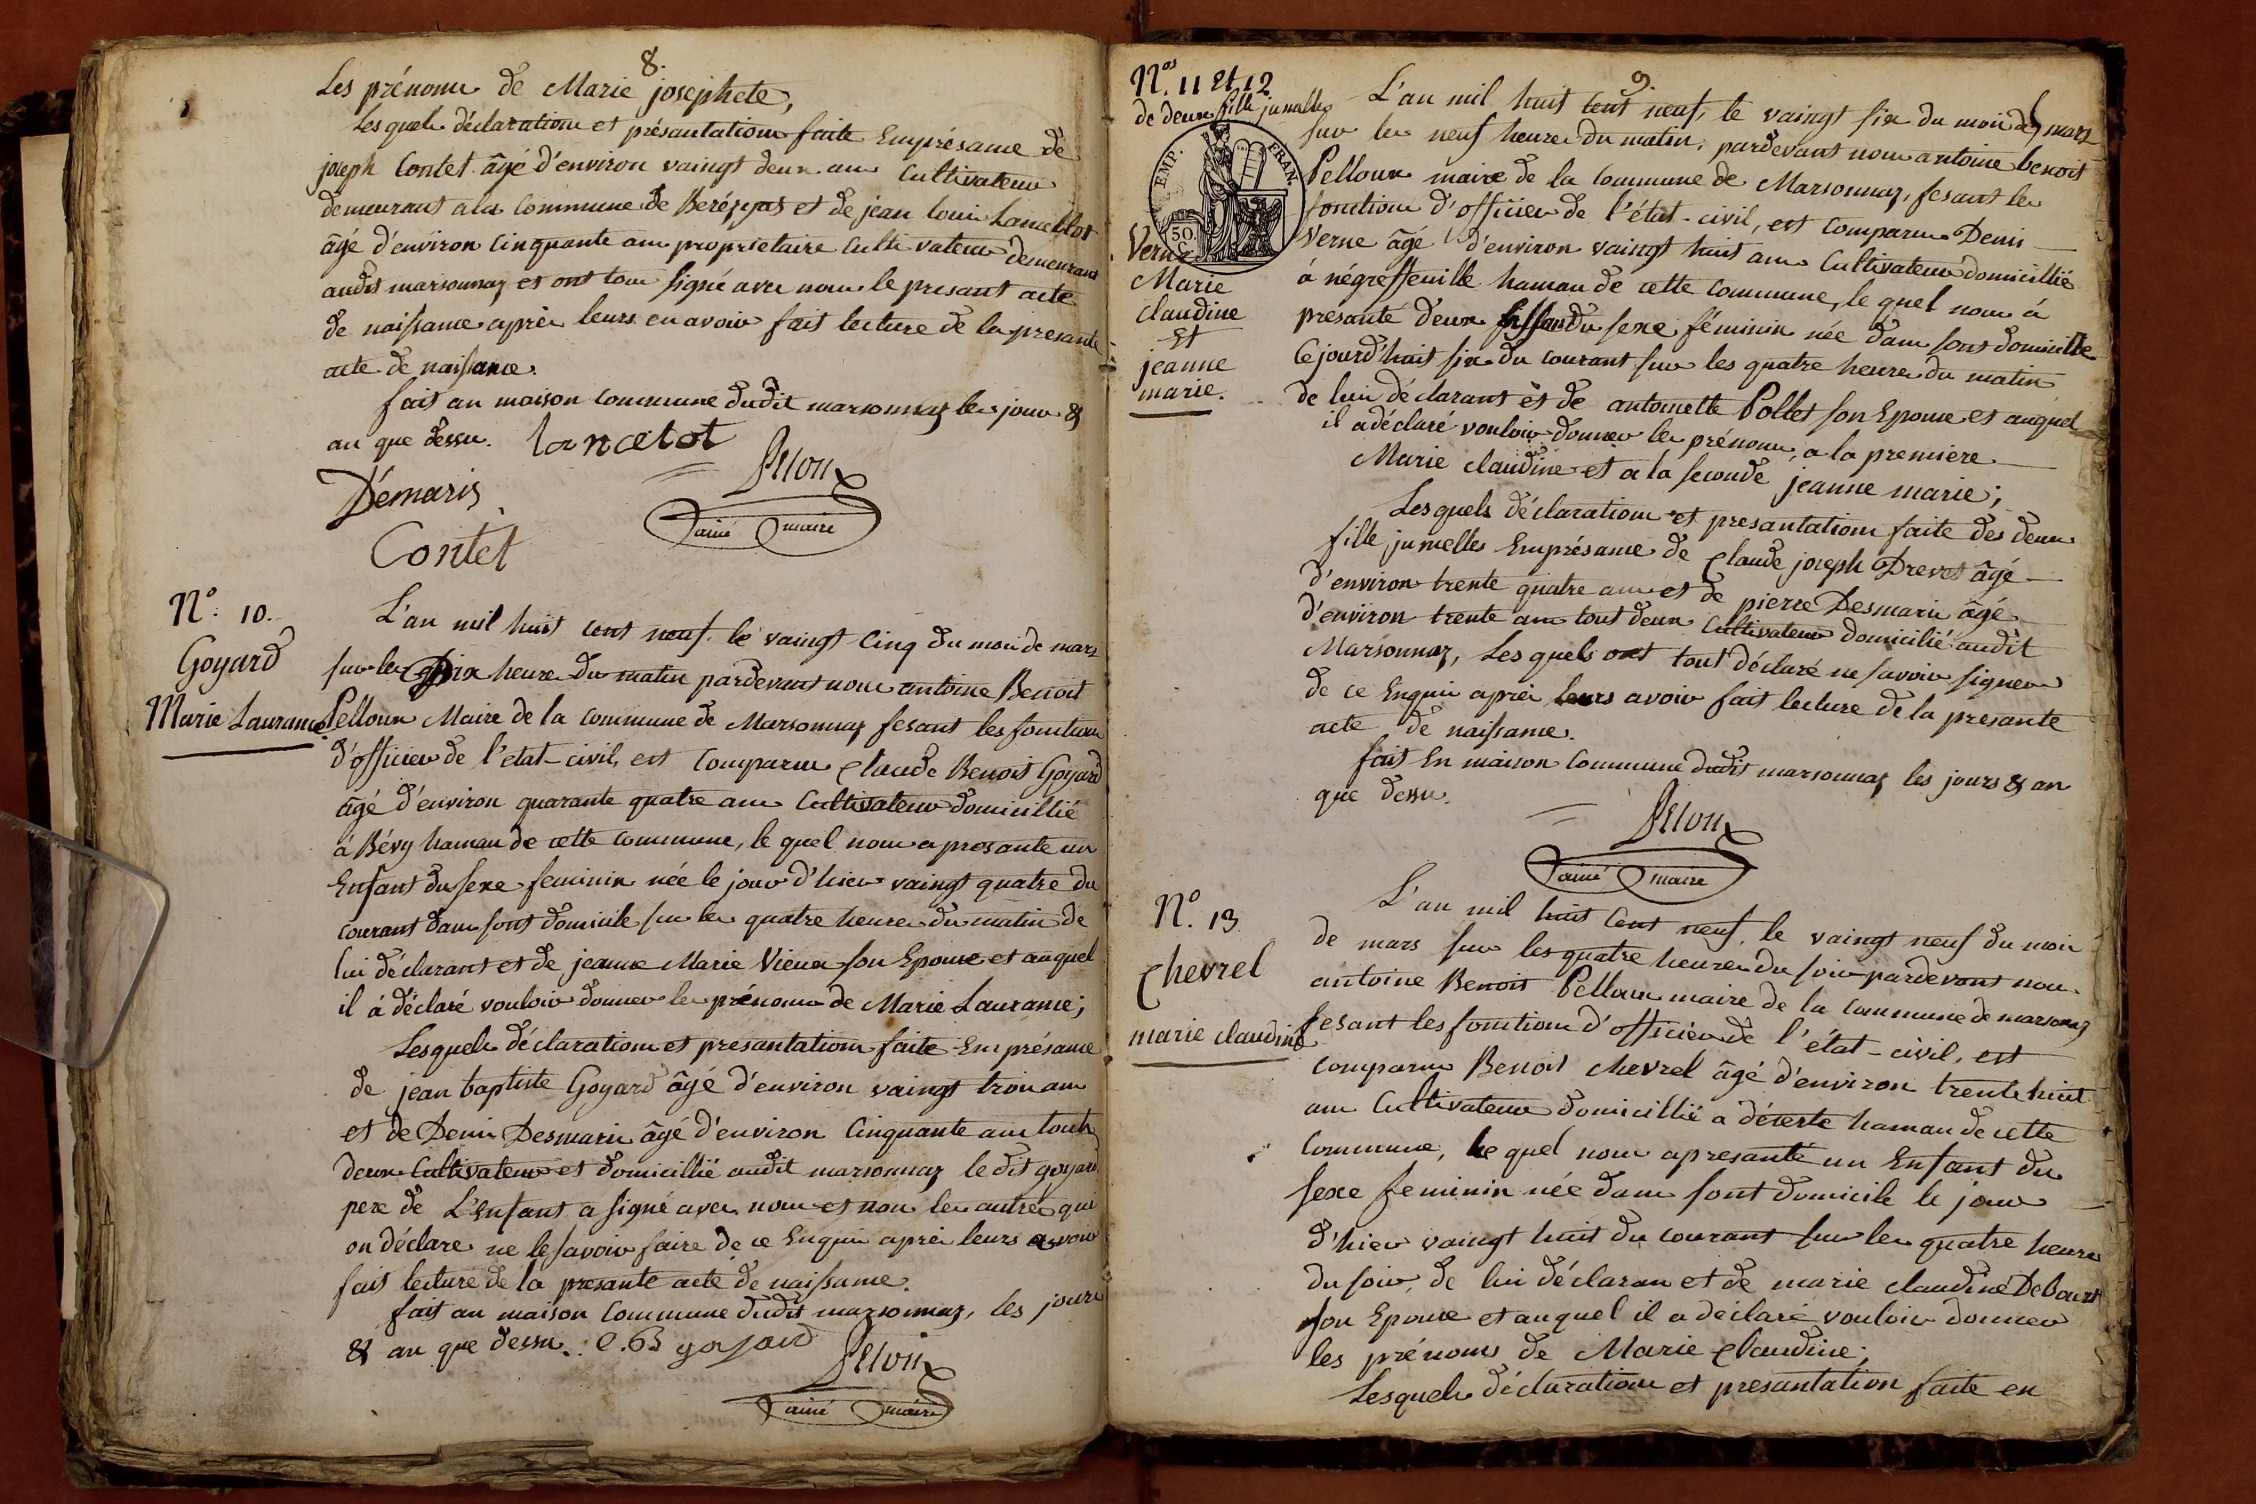 8.
Les prénoms de Marie josephete,
Les quels déclarations et présantations faite Emprésame de
joseph Contet âgé d'environ vaingt deux ans Cultivateur
demeurant a la Commune de Beréziat et de jean louis Lancelot
âgé d'environ Cinquante ans proprietaire Culti vateur demeurant
audit marsonnaz et ont tous signé avec nous le presant acte
de naissance après leurs en avoir fait lecture de la presante
acte de naissance.
fait au maison Commune dudit marsonnaz les jour &
an que dessu. lancelot
Pelloux
D'emaris
ainé maire
Contet
N.º 10.
Goyard
Marie Laurance
L'an mil huit cent neuf, le vaingt Cinq du mois de mars
sur les Dix heure du matin pardevant nous antoine Benoit
Pelloux Maire de la Commune de Marsonnaz fesant les fonctions
d'officier de l'etat-civil, est Comparus Claude Benoit Goyard
âgé d'environ quarante quatre ans Cultivateur domicillié
à Bévy hamau de cette Commune, le quel nous a presanté un
Enfant du sexe feminin née le jour d'hier vaingt quatre du
courant dans sont domicile sur les quatre heure du matin de
lui déclarant et de jeanne Marie Vieux son Epouse et auquel
il á déclaré vouloir donner les prénoms de Marie Laurance;
Lesquels déclarations et presantations faite Emprésance
de jean baptiste Goyard âgé d'environ vaingt trois ans
et de Denis Desmaris âgé d'environ Cinquante ans touts
deux Cultivateur et domicillié audit marsonnaz le dit goyard
pere de L'enfant a signé avec nous et non les autres qui
on déclare ne le savoir faire de ce Enquis après leurs avoir
fait lecture de la presante acte de naissance.
fait au maison Commune dudit marsonnaz, les jours
& an que dessu. C. B goyard
Pelloux
ainé maire
9.
N.os 11 Et 12
de deux fille jumelles
EMP. FRAN.
50. C.
Verne
Marie
Claudine
Et
jeanne
marie.
L'an mil huit cent neuf, le vaingt six du mois de mars
sur les neuf heure du matin, pardevant nous antoine benoit
Pelloux maire de la Commune de Marsonnaz, fesant les
fonctions d'officier de l'état-civil, est Comparus Denis
Verne âgé d'environ vaingt huit ans Cultivateur domicillié
à négreffeuille hamau de cette Commune, le quel nous á
présanté deux du sexe féminin née dans sont domicille
Cejourd'huit six du courant sur les quatre heure du matin
de lui déclarant ét de antoinette Pollet son Epouse et auquel
il a déclaré vouloir donner les prénoms, a la premiere
Marie claudine et a la seconde jeanne marie;
Lesquels déclarations et presantations faite des deux
fille jumelles Emprésance de Claude joseph Drevet âgé
d'environ trente quatre ans et de pierre Desmaris âgé
d'environ trente ans tout deux Cultivateur domicilié audit
Marsonnaz, Les quels ont tout déclaré ne savoir signer
de ce Enquis après leurs avoir fait lecture de la presante
acte de naissance.
fait En maison Commune dudit marsonnaz les jours & an
que dessu.
Pelloux
ainé maire
N.º 13
Chevrel
marie claudine
L'an mil huit Cent neuf, le vaingt neuf du mois
de mars sur les quatre heures du soir pardevant nous
antoine Benoit Pelloux maire de la Commune de marsonnaz
fesant les fonctions d'officier de l'état-civil, est
Comparus Benoit chevrel âgé d'environ trente huit
ans Cultivateur domicillié a déterte hamau de cette
Commune, le quel nous a presanté un Enfant du
sexe feminin née dans sont domicile le jour
d'hier vaingt huit du courant sur les quatre heures
du soir, de lui déclarans et de marie claudine Debourt
son Epouse et auquel il a déclaré vouloir donner
les prénoms de Marie Claudine;
Lesquels déclarations et presantation faite en